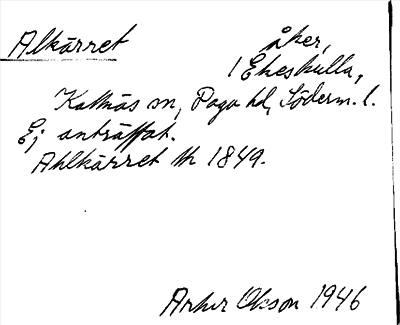 Alkärret åker,
1 Ekeskulla,
Kattnäs sn, Daga hd, Söderm. l.
Ej anträffat.
Ahlkärret lk 1849.
Arthur Okson 1946